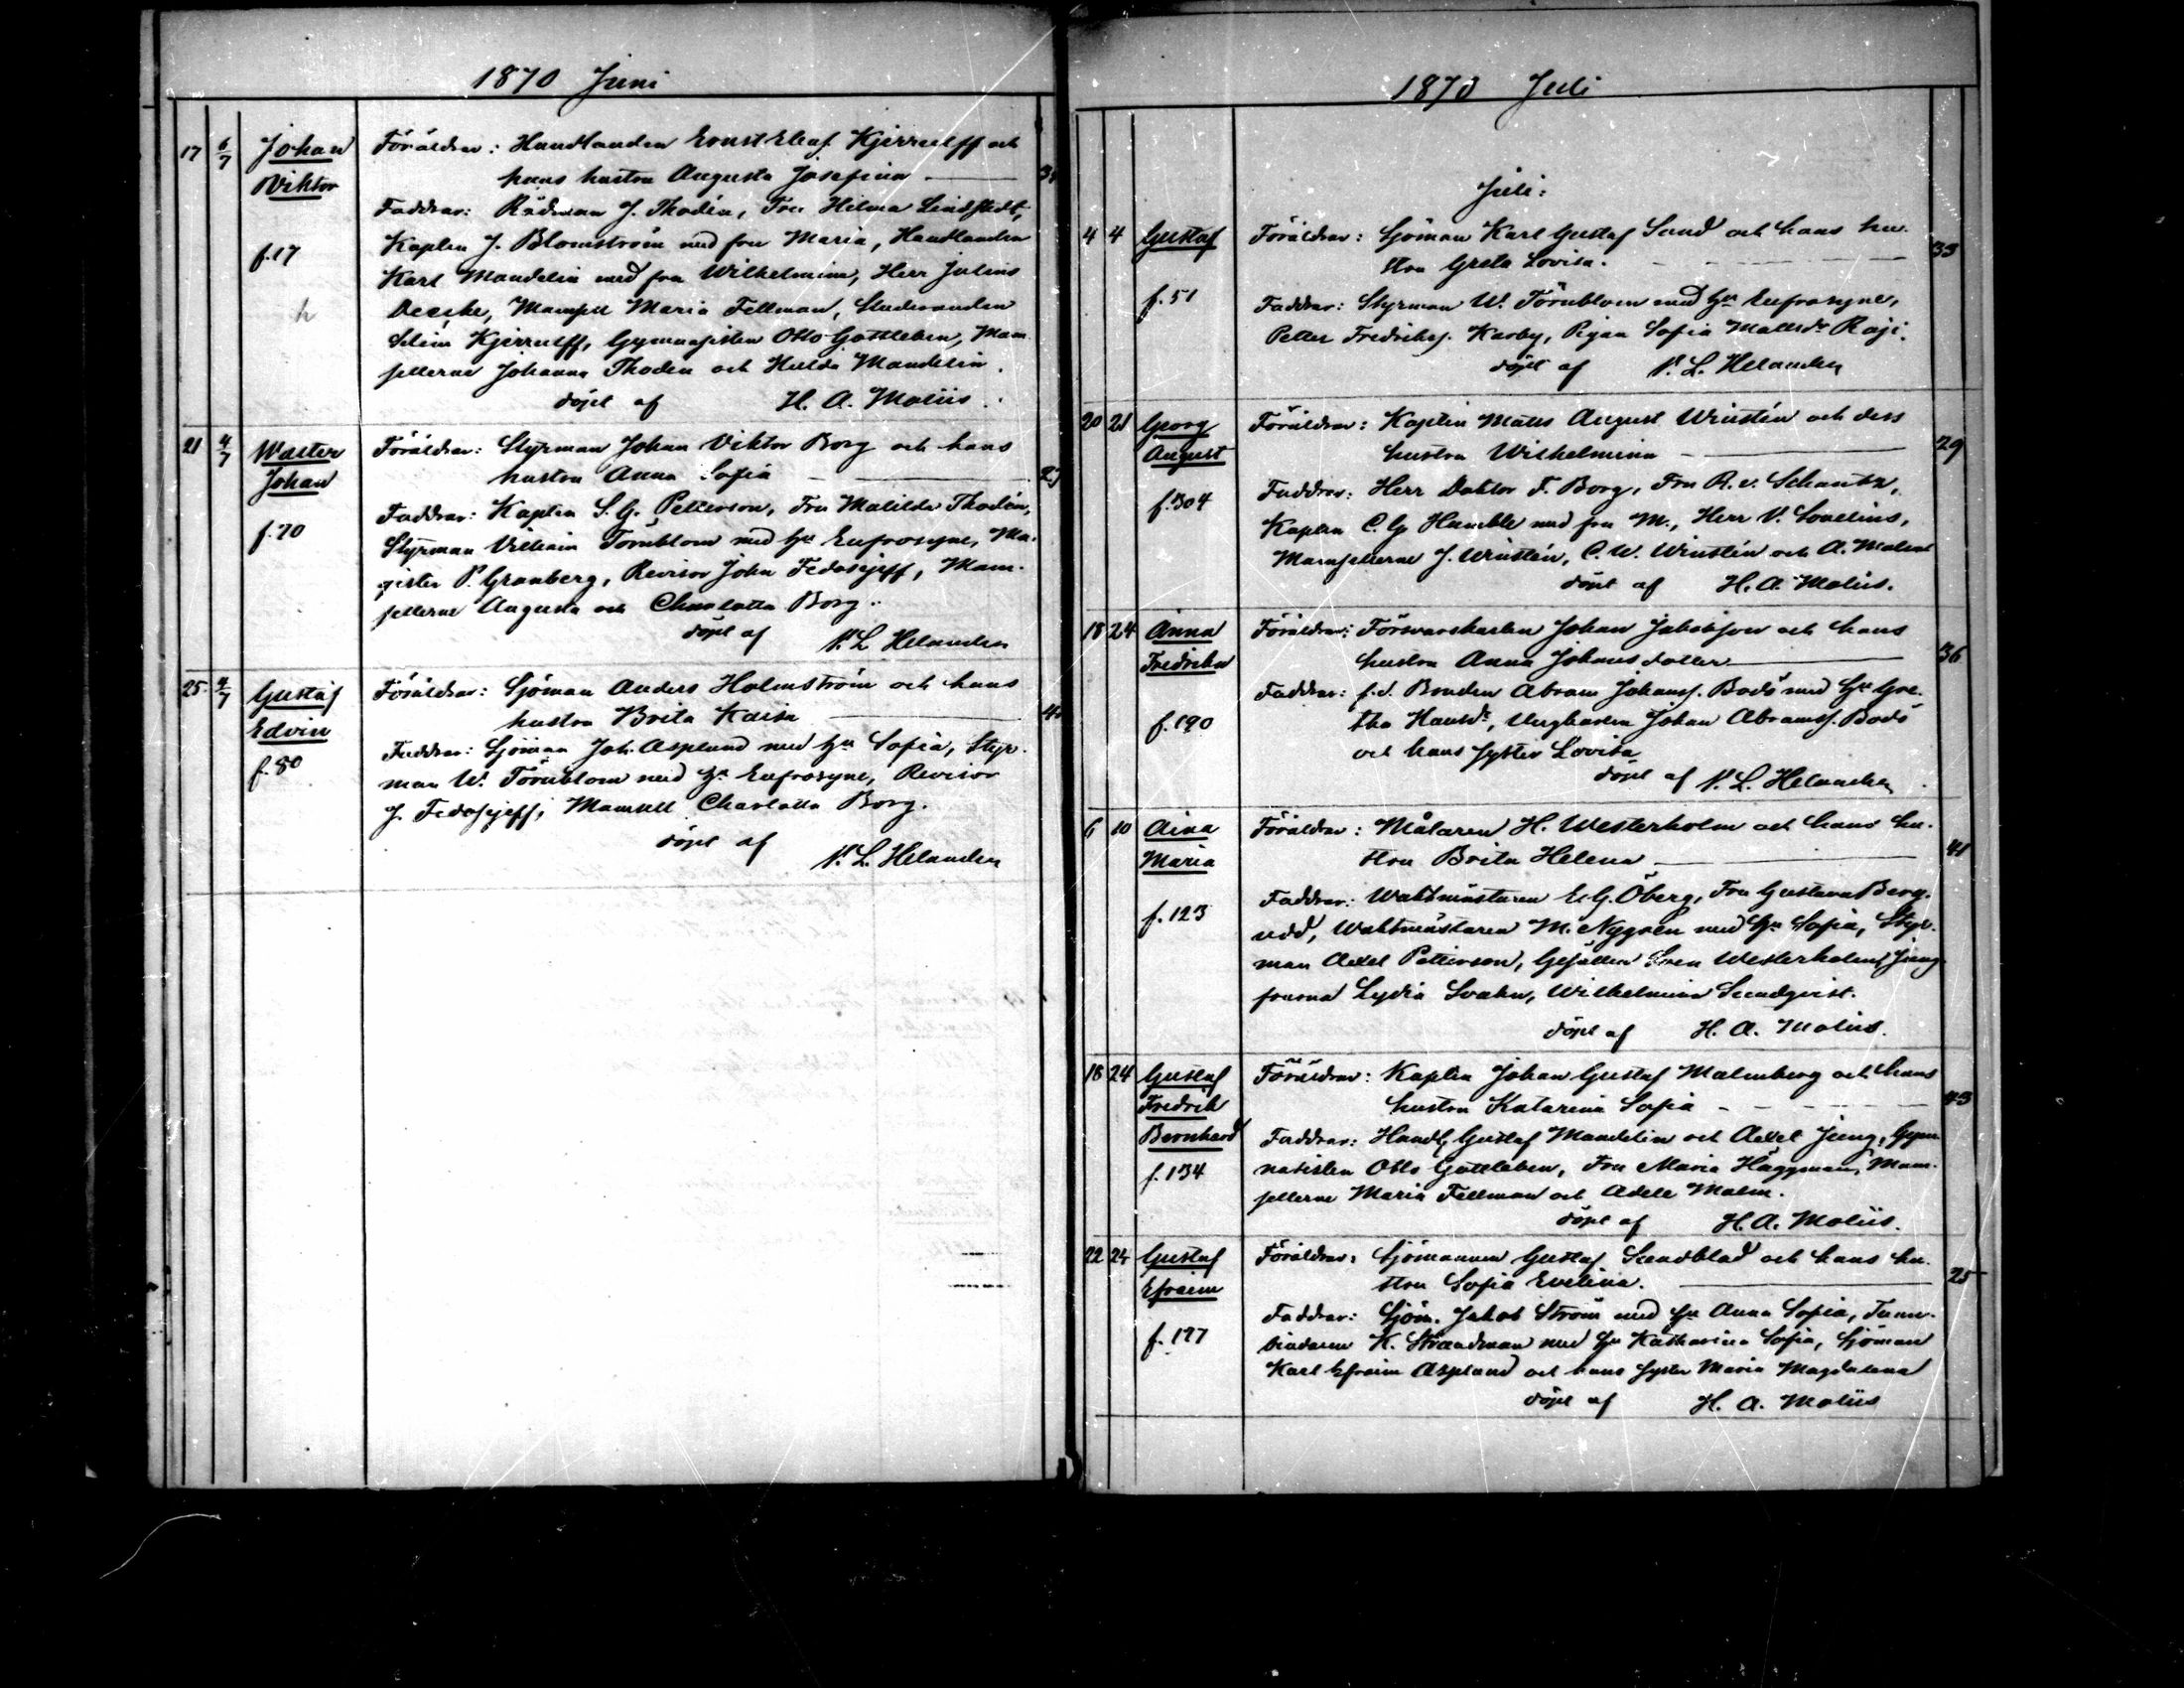 1870 Juni
17 6/7 Johan Viktor f. 17
Föräldrar: Handlanden Ernst Eleaf Kjerrulff och
hans hustru Augusta Josefina
Faddrar: Rådman J. Thodén, Fru Hilma Lindstedt,
Kapten J. Blomström med fru Maria, Handlanden
Karl Mandelin med fru Wilhelmina, Herr Julius
Deeske, Mamsell Maria Fellman, Studeranden
Selim Kjerrulff, Gymnasisten Otto Gottleben, Mam
sellerne Johanna Thoden och Hulda Mandelin.
döpt af H. A. Moliis.
21 4/7 Walter Johan f. 70
Föräldrar: Styrman Johan Viktor Borg och hans
hustru Anna Sofia 27
Faddrar: Kapten S. G. Petterson, Fru Matilda Thodén,
Styrman Vilhelm Törnblom med hu Eufrosyne, Ma-
gister P. Granberg, Revisor John Fedosejeff, Mam-
sellerne Augusta och Charlotta Borg.
döpt af V. L. Helander
25. 4/7 Gustaf Edvin f. 80
Föräldrar: Sjöman Anders Holmström och hans
hustru Brita Kaisa
Faddrar: Sjöman Joh. Asplund med hu Sofia, Styr-
man W. Törnblom med hu Eufrosyne, Revisor
J. Fedosejeff, Mamsell Charlotta Borg.
döpt af V. L. Helander
1870 Juli
Juli:
4 4 Gustaf f. 51
Föräldrar: Sjöman Karl Gustaf Sund och hans hu-
stru Greta Lovisa. 33
Faddrar: Styrman W. Törnblom med hu Eufrosyne,
Petter Fredrikss. Karby, Pigan Sofia Mattsdr Raji.
döpt af V. L. Helander
20 21 Georg August f. 304
Föräldrar: Kapten Matts August Winstén och dess
hustru Wilhelmina 29
Faddrar: Herr Doktor F. Borg, Fru R. v. Schantz,
Kapten C. G Humble med fru M., Herr V. Sovelius,
Mamsellerne J. Winstén, C. W. Winstén och A. Malm
döpt af H. A. Moliis.
18 24 Anna Fredrika f. 190
Föräldrar: Försvarskarlen Johan Jakobsson och hans
hustru Anna Johansdotter 36
Faddrar: f.d. Bonden Abram Johanss. Bodö med hu Gre-
tha Hansdr, Ungkarlen Johan Abramss. Bodö
och hans syster Lovisa
döpt af V. L. Helander
6 10 Aina Maria f. 123
Föräldrar: Målaren H. Westerholm och hans hu-
stru Brita Helena 41
Faddrar: Waktmästaren E. G. Öberg, Fru Gustava Berg-
udd, Waktmästaren M. Nygrén med hu Sofia, Styr-
man Axel Petterson, Gesällen Sven Westerholm, Jung-
fruarna Lydia Svahn, Wilhelmina Sundqvist.
döpt af H. A. Moliis.
18 24 Gustaf Fredrik Bernhard f. 134
Föräldrar: Kapten Johan Gustaf Malmberg och hans
hustru Katarina Sofia 43
Faddrar: Handl. Gustaf Mandelin och Axel Jung, Gym-
nasisten Otto Gottleben, Fru Maria Häggman, Mam-
sellerne Maria Fellman och Adele Malm.
döpt af H. A. Moliis.
22 24 Gustaf Efraim f. 177
Föräldrar: Sjömannen Gustaf Sundblad och hans hu-
stru Sofia Evelina. 25
Faddrar: Sjöm. Jakob Ström med hu Anna Sofia, Tunn-
bindaren K. Strandman med hu Katharina Sofia, Sjöman
Karl Efraim Asplund och hans syster Maria Magdalena
döpt af H. A. Moliis